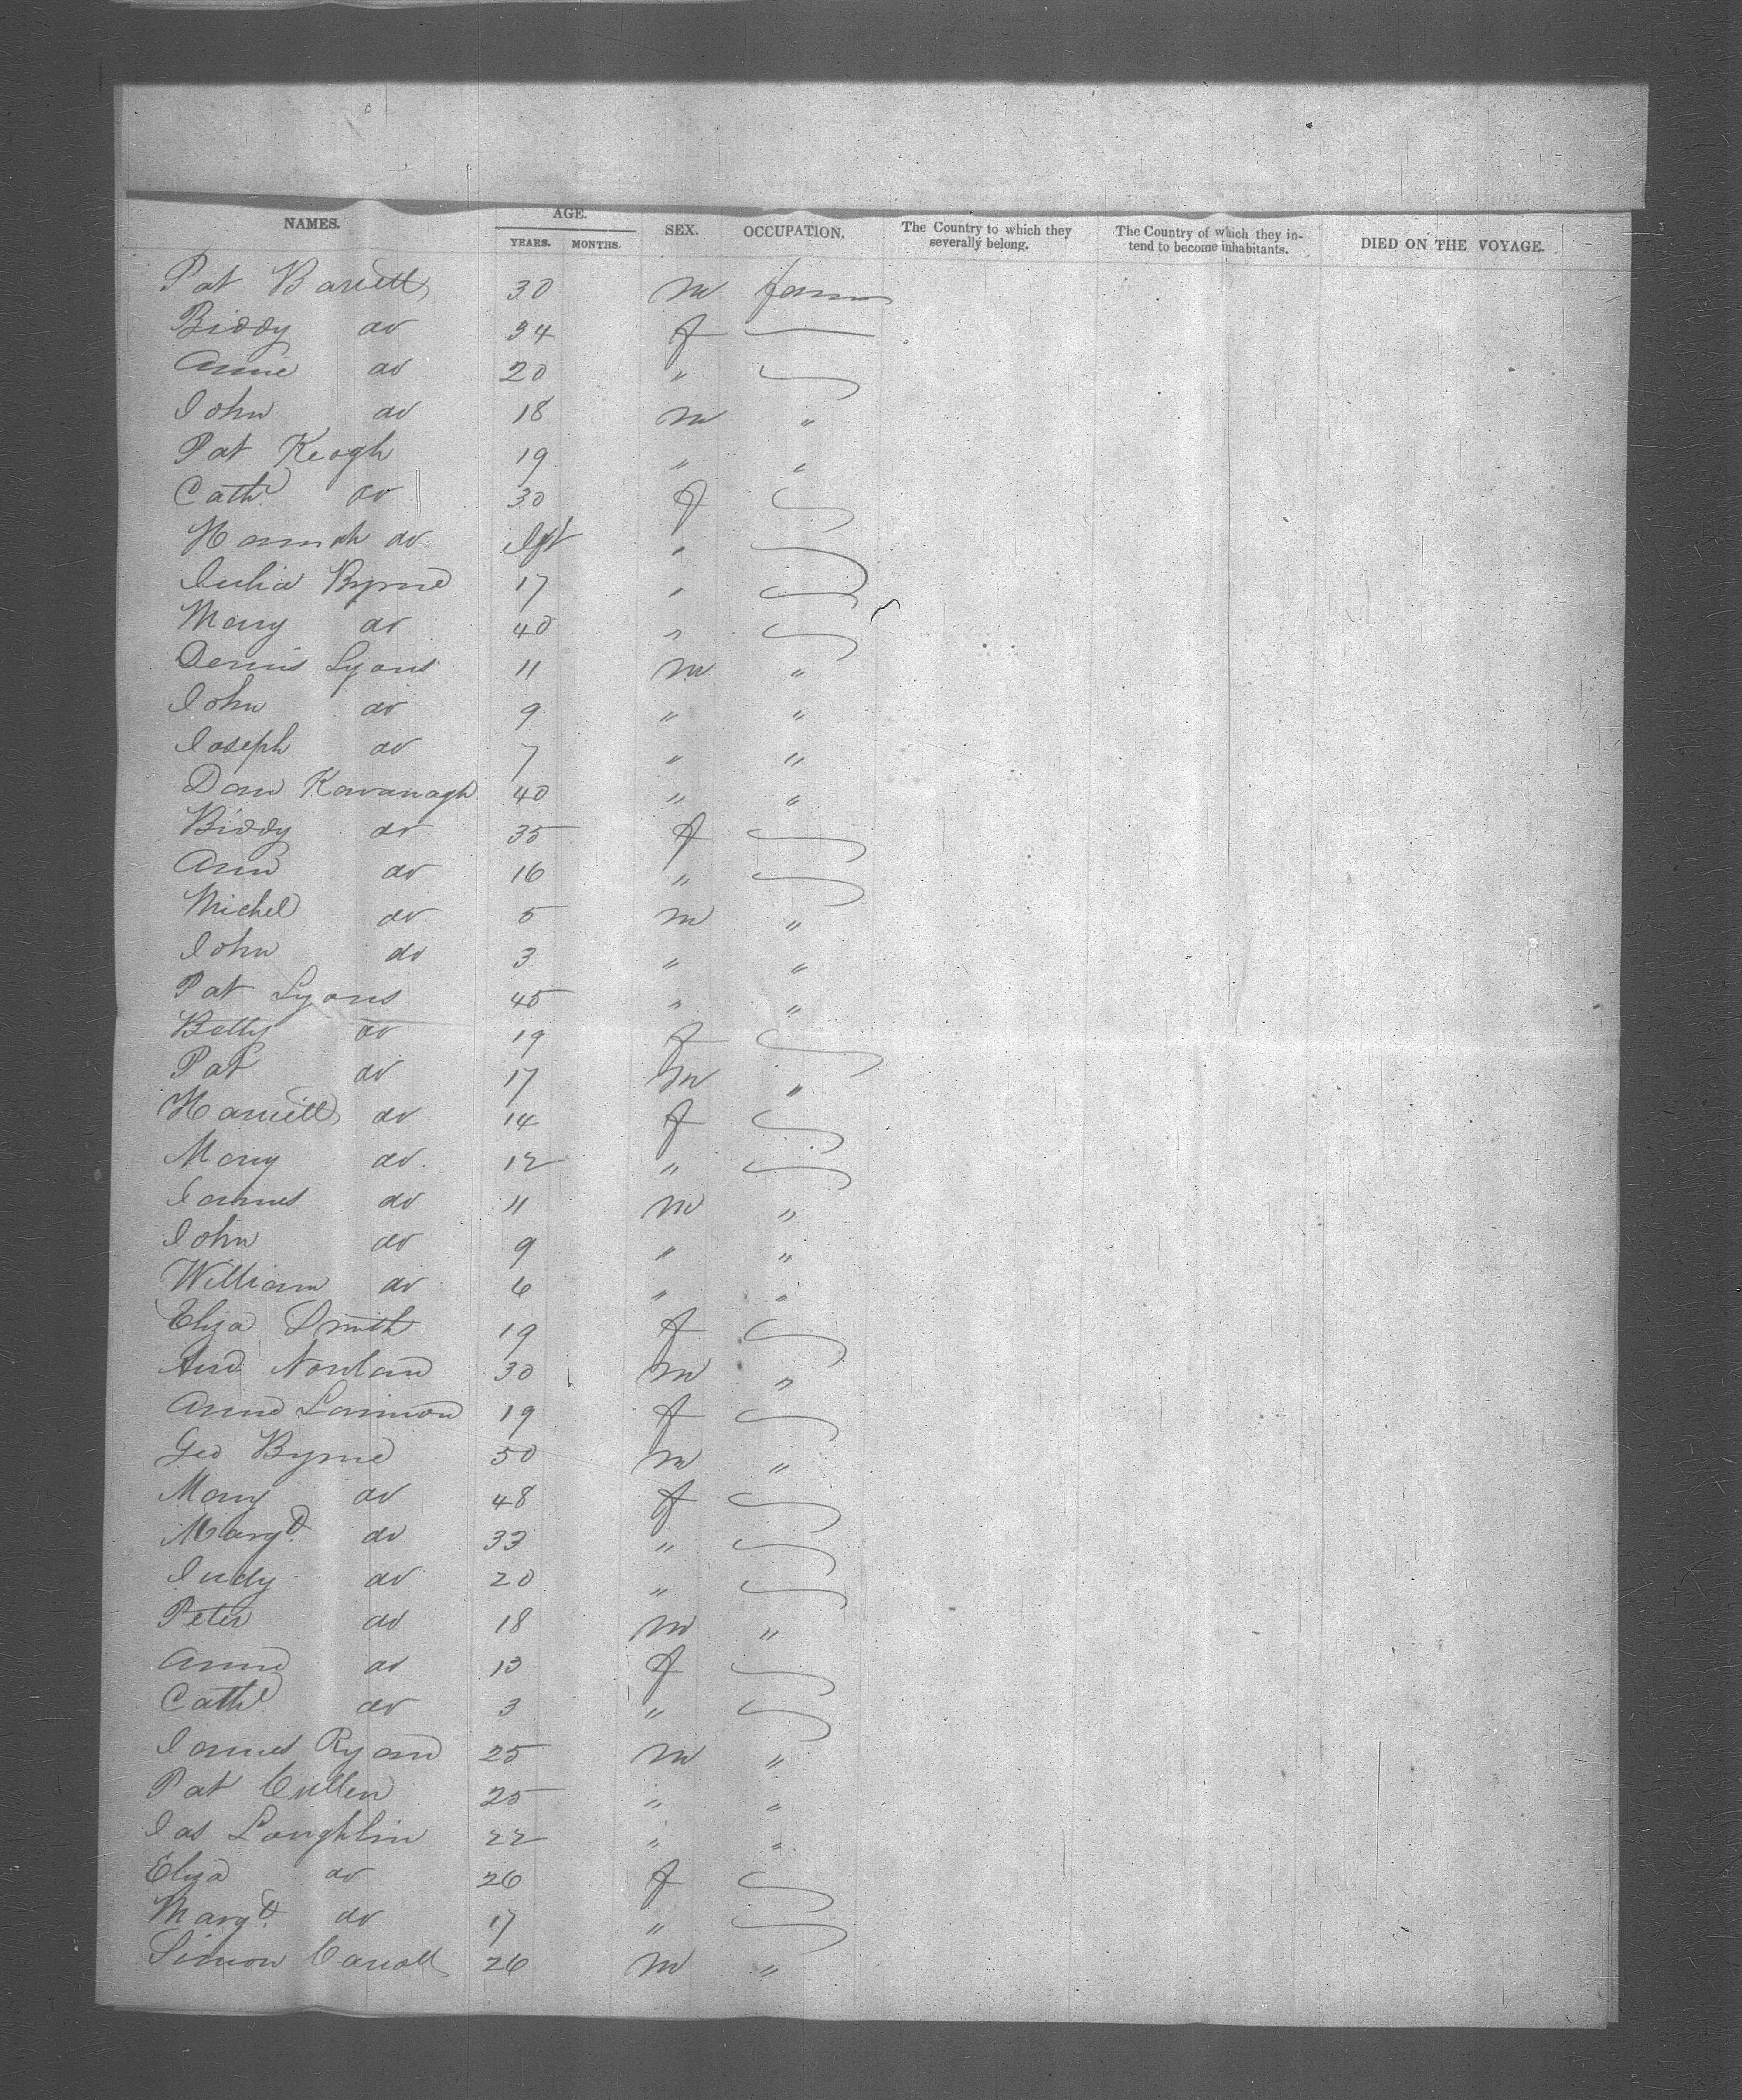 NAMES. AGE. SEX. OCCUPATION. The Country to which they severally belong. The Country of which they intend to become inhabitants. DIED ON THE VOYAGE.
YEARS. MONTHS.
Pat Barrett 30 m farmr
Biddy do 34 f —
Annie do 20 "
John do 18 m "
Pat Keogh 19 " "
Cathe do 30 f
Hannah do Inft "
Julia Byrne 17 "
Mary do 40 "
Dennis Lyons 11 m "
John do 9 " "
Joseph do 7 " "
Danl Kavanagh 40 " "
Biddy do 35 f
Ann do 16 "
Michel do 5 m "
John do 3 " "
Pat Lyons 45 " "
Betty do 19 f
Pat do 17 m "
Harriett do 14 f
Mary do 12 "
James do 11 m "
John do 9 " "
William do 6 " "
Eliza Smith 19 f
And. Nowlan 30 m "
Anne Lannon 19 f
Geo Byrne 50 m "
Mary do 48 f
Margt do 33 "
Judy do 20 "
Peter do 18 m "
Anne do 13 f
Cathe do 3 "
James Ryan 25 m "
Pat Cullen 25 " "
Jas Loughlin 22 " "
Eliza do 26 f
Margt. do 17 "
Simon Caroll 26 m "